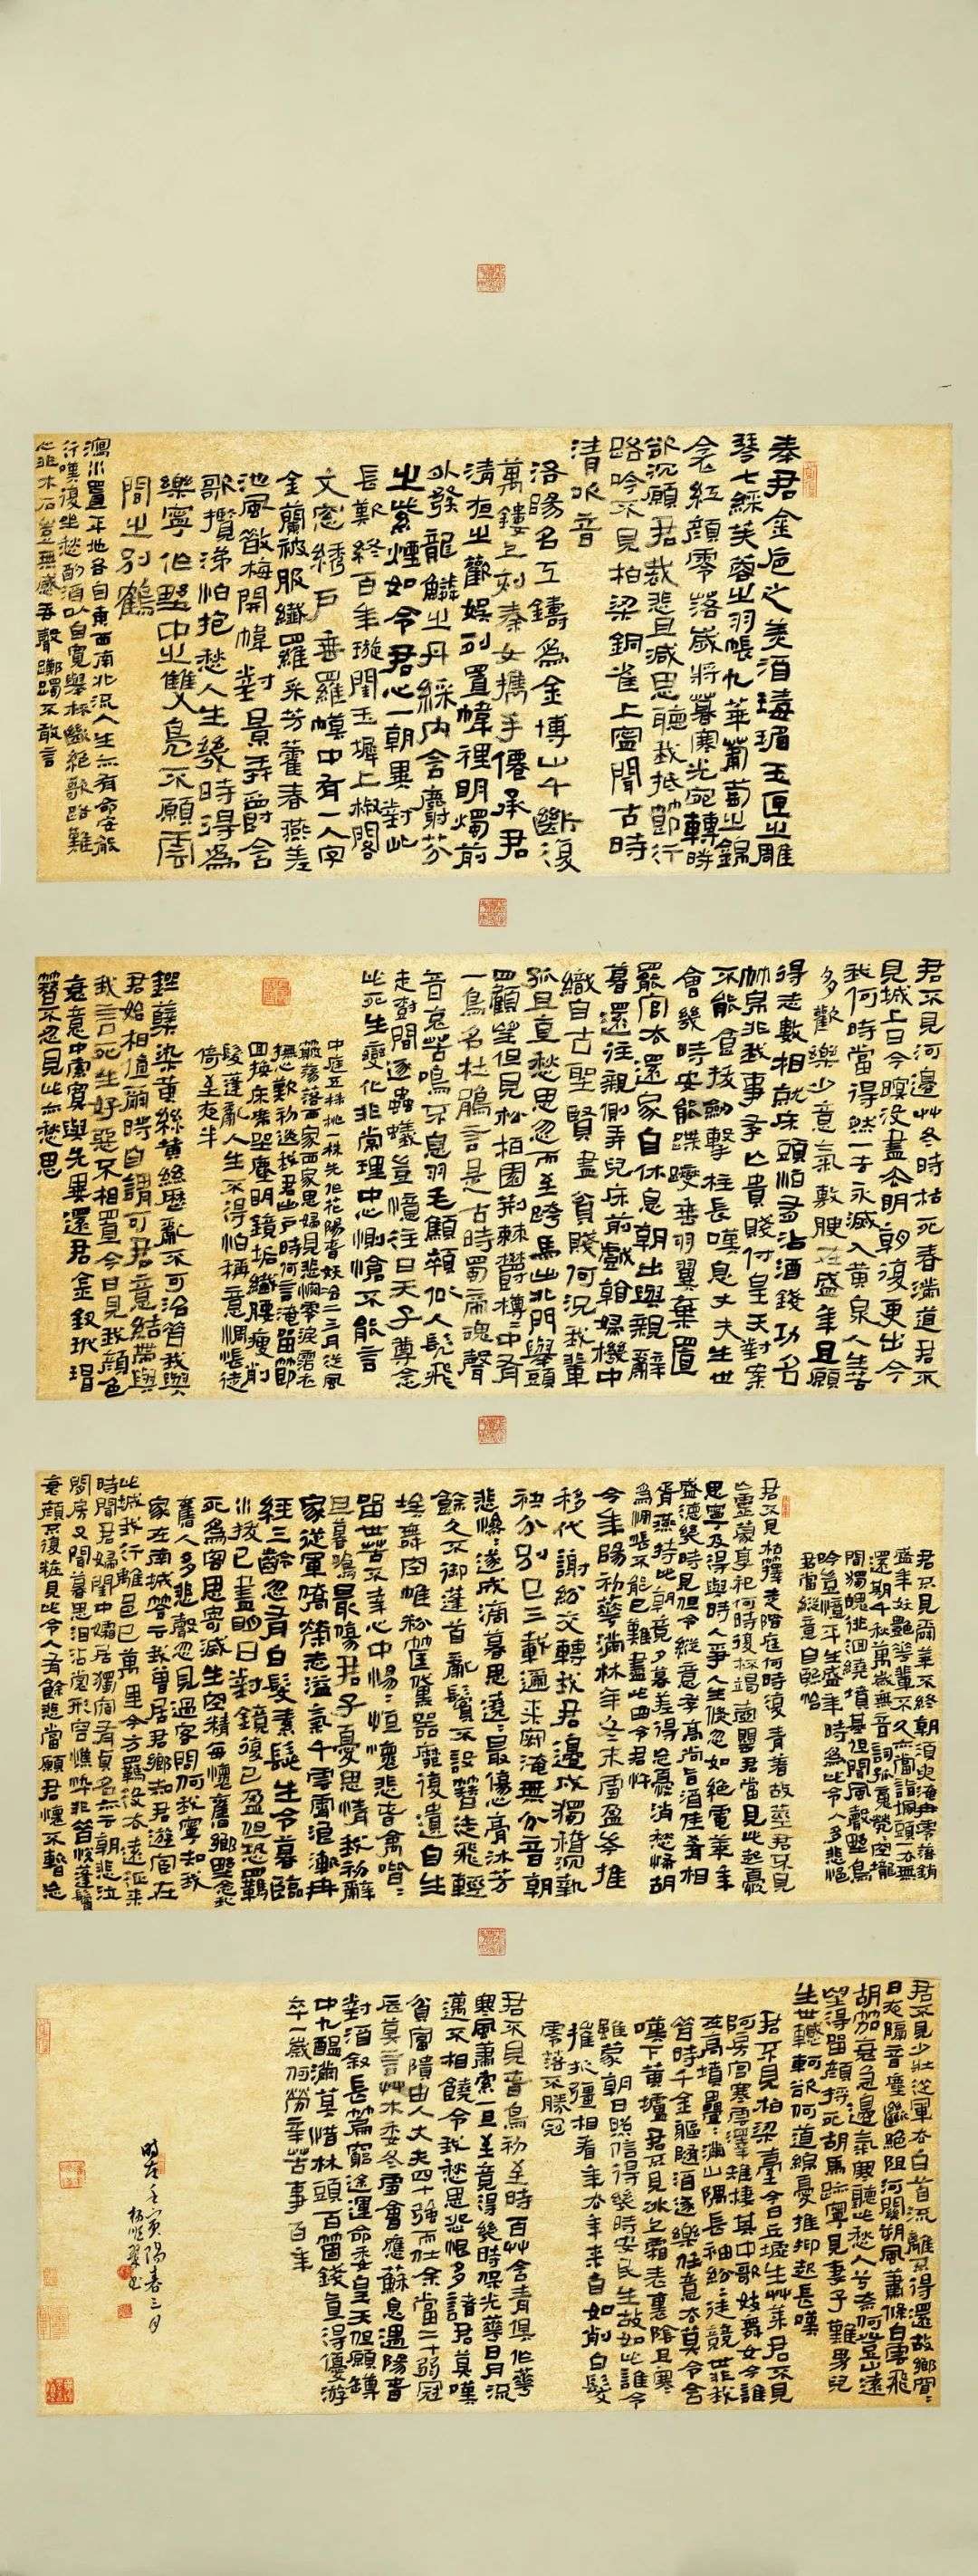 奉君金卮之美酒瑇瑁玉匣之雕
琴七綵芙蓉之羽帳九華蒲萄之錦
衾紅顏零落歲將暮寒光宛轉時
欲沉願君裁悲且減思聽我抵節行
路吟不見柏梁銅雀上寧聞古時
清吹音
洛陽名工鑄為金博山千斲復
萬鏤上刻秦女攜手僊承君
清夜之歡娛列置幃裡明燭前
外發龍鱗之丹綵內含麝芬
之紫煙如今君心一朝異對此
長歎終百年璇閨玉墀上椒閣
文窓綉戶垂羅幙中有一人字
金蘭被服纖羅采芳藿春燕差
池風散梅開幃對景弄爵含
歌攬涕怕抱愁人生幾時得為
樂寧作野中之雙鳧不願雲
間之別鶴
瀉水置平地各自東西南北流人生亦有命安能
行嘆復坐愁酌酒以自寬舉杯斷絕歌路難
心非木石豈無感吞聲躑躅不敢言
君不見河邊艸冬時枯死春滿道君不
見城上日今暝沒盡去明朝復更出今
我何時當得然一去永滅入黃泉人生苦
多歡樂少意氣敷腴在盛年且願
得志數相就床頭怕有沽酒錢功名
竹帛非我事存亡貴賤付皇天對案
不能食拔劍擊柱長嘆息丈夫生世
會幾時安能蹀躞垂羽翼棄置
罷官去還家自休息朝出與親辭
暮還在親側弄兒床前戲看婦機中
織自古聖賢盡貧賤何況我輩
孤且直愁思忽而至跨馬出北門舉頭
四顧望但見松柏園荆棘鬱樽=中有
一鳥名杜鵑言是古時蜀帝魂聲
音哀苦鳴不息羽毛顦顇似人髡飛
走樹間逐蟲蟻豈憶往日天子尊念
此死生變化非常理中心惻愴不能言
中庭五株桃一株先作花陽春妖冶二三月從風
簸蕩落西家西家思婦見悲惋零淚霑衣
撫心歎初送我君出戶時何言淹留節
回換床席生塵明鏡垢纖腰瘦削
髮蓬亂人生不得怕稱意惆悵徙
倚至夜半
剉蘗染黃絲黃絲歷亂不可治昔我與
君始相值爾時自謂可君意結帶與
我言死生好惡不相置今日見我顏色
衰意中索寞與先異還君金釵玳瑁
簪不忍見此亦愁思
君不見蕣華不終朝須臾淹冉零落銷
盛年妖艷浮華輩不久亦當詣塚頭一去無
還期千秋萬歲無音詞孤魂煢煢空隴
間獨魄徘徊繞墳基但聞風聲野鳥
吟豈憶平生盛年時為此令人多悲悒
君當縱意自熙怡
君不見枯籜走階庭何時復青著故莖君不見
亡靈蒙享祀何時傾杯竭壺罌君當見此起憂
思寧及得與時人爭人生倏忽如絕電華年
盛德幾時見但令縱意存高尚旨酒佳肴相
胥燕持此朝竟夕暮差得亡憂消愁怖胡
為惆悵不能已難盡此曲令君忤
今年陽初華滿林年冬末雪盈岑推
移代謝紛交轉我君邊戍獨稽沉執
袂分別已三載邇來寂淹無分音朝
悲慘=遂成滴暮思遶=最傷心膏沐芳
餘久不御蓬首亂鬢不設簪徒飛輕
埃舞空帷粉筐黛器靡復遺自生
留世苦不幸心中惕=恒懷悲春禽喈=
旦暮鳴最傷君子憂思情我初辭
家從軍僑榮志溢氣干雲霄流浪漸冉
經三齡忽有白髮素髭生今暮臨
水拔已盡明日對鏡復已盈但恐羈
死為鬼客思寄滅生空精每懷舊鄉野念我
舊人多悲聲忽見過客問何我寧知我
家在南城答云我曾居君鄉知君遊宦在
此城我行離邑已萬里今方羈役去遠征來
時聞君婦閨中孀居獨宿有貞名亦云朝悲泣
閑房又聞暮思淚沾裳形容憔悴非昔悅蓬鬢
衰顏不復妝見此令人有餘悲當願君懷不暫忘
君不見少壯從軍去白首流離不得還故鄉窅=
日夜隔音塵斷絕阻河關朔風蕭條白雲飛
胡笳哀急邊氣寒聽此愁人兮奈何登山遠
望得留顏將死胡馬跡寧見妻子難男兒
生世轗軻欲何道綿憂摧抑起長嘆
君不見柏梁臺今日丘墟生艸萊君不見
阿房宮寒雲澤雉棲其中歌妓舞女今誰
在高墳壘=滿山隅長袖紛=徒競世非我
昔時千金軀隨酒逐樂任意去莫令含
嘆下黃壚君不見冰上霜表裏陰且寒
雖蒙朝日照信得幾時安民生故如此誰令
摧折彊相看年去年來自如削白髮
零落不勝冠
君不見春鳥初至時百艸含青俱作華
寒風蕭索一旦至竟得幾時保光華日月流
邁不相饒令我愁思怨恨多諸君莫嘆
貧富貴由人丈夫四十強而仕余當二十弱冠
辰莫言艸木委冬雪會應蘇息遇陽春
對酒敘長篇窮途運命委皇天但願罇
中九醞滿莫惜床頭百箇錢直得優游
卒一歲何勞辛苦事百年
時在壬寅陽春三月